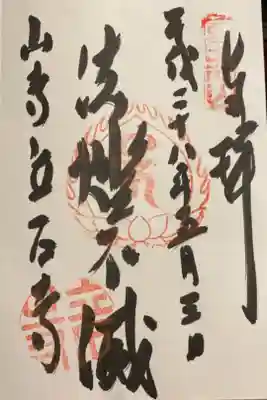 奉拝
平成二十八年五月三日
法燈不滅
山寺立石寺